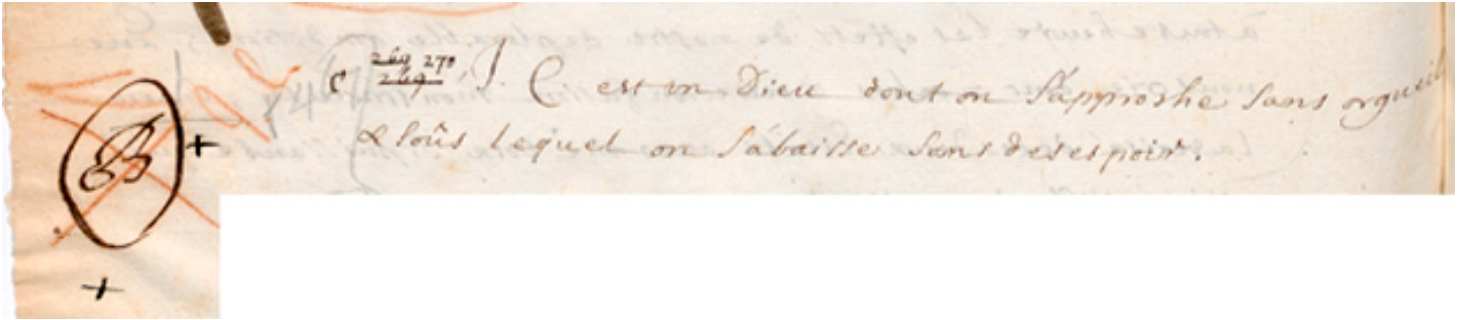 269 270
c 269 J. C est un Dieu dont on s'approche sans orgueil
B + & soûs lequel on s'abaisse sans desespoir.
+